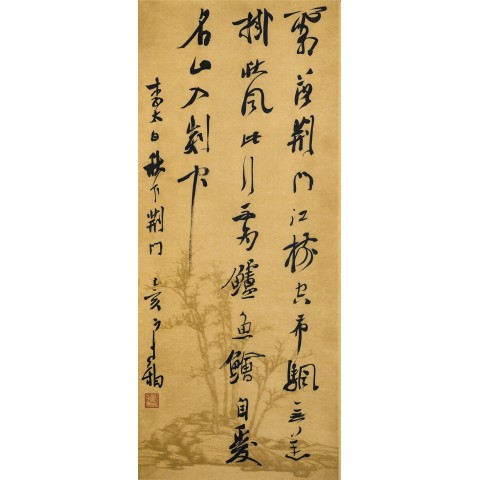 霜落荆門江樹空布颿無恙
掛秋風此行不為鱸魚鱠自愛
名山入剡中
李太白秋下荆門